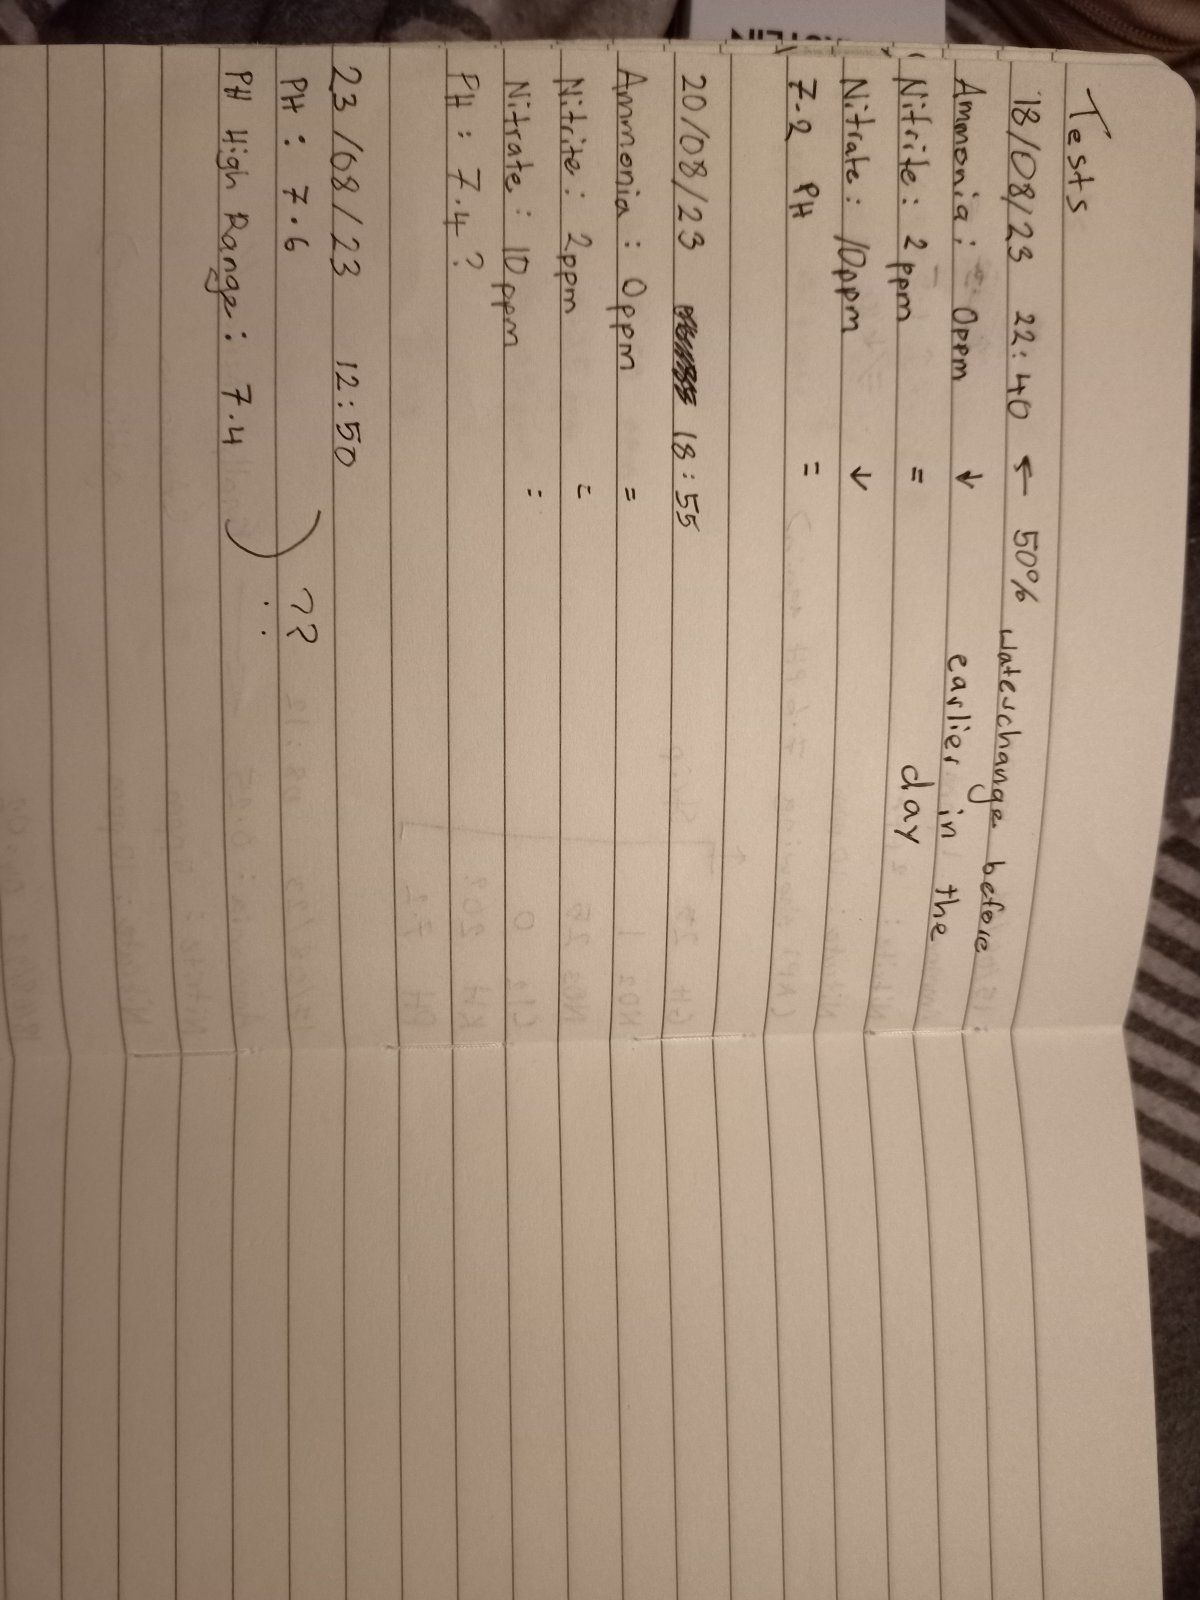 Tests
18/08/23 22:40 ← 50% waterchange before earlier in the day
Ammonia: 0ppm ↓
Nitrite: 2ppm =
Nitrate: 10ppm ↓
7.2 PH =
20/08/23 18:55
Ammonia: 0ppm =
Nitrite: 2ppm =
Nitrate: 10ppm =
PH: 7.4?
23/08/23 12:50
PH: 7.6
PH High Range: 7.4 ) ??